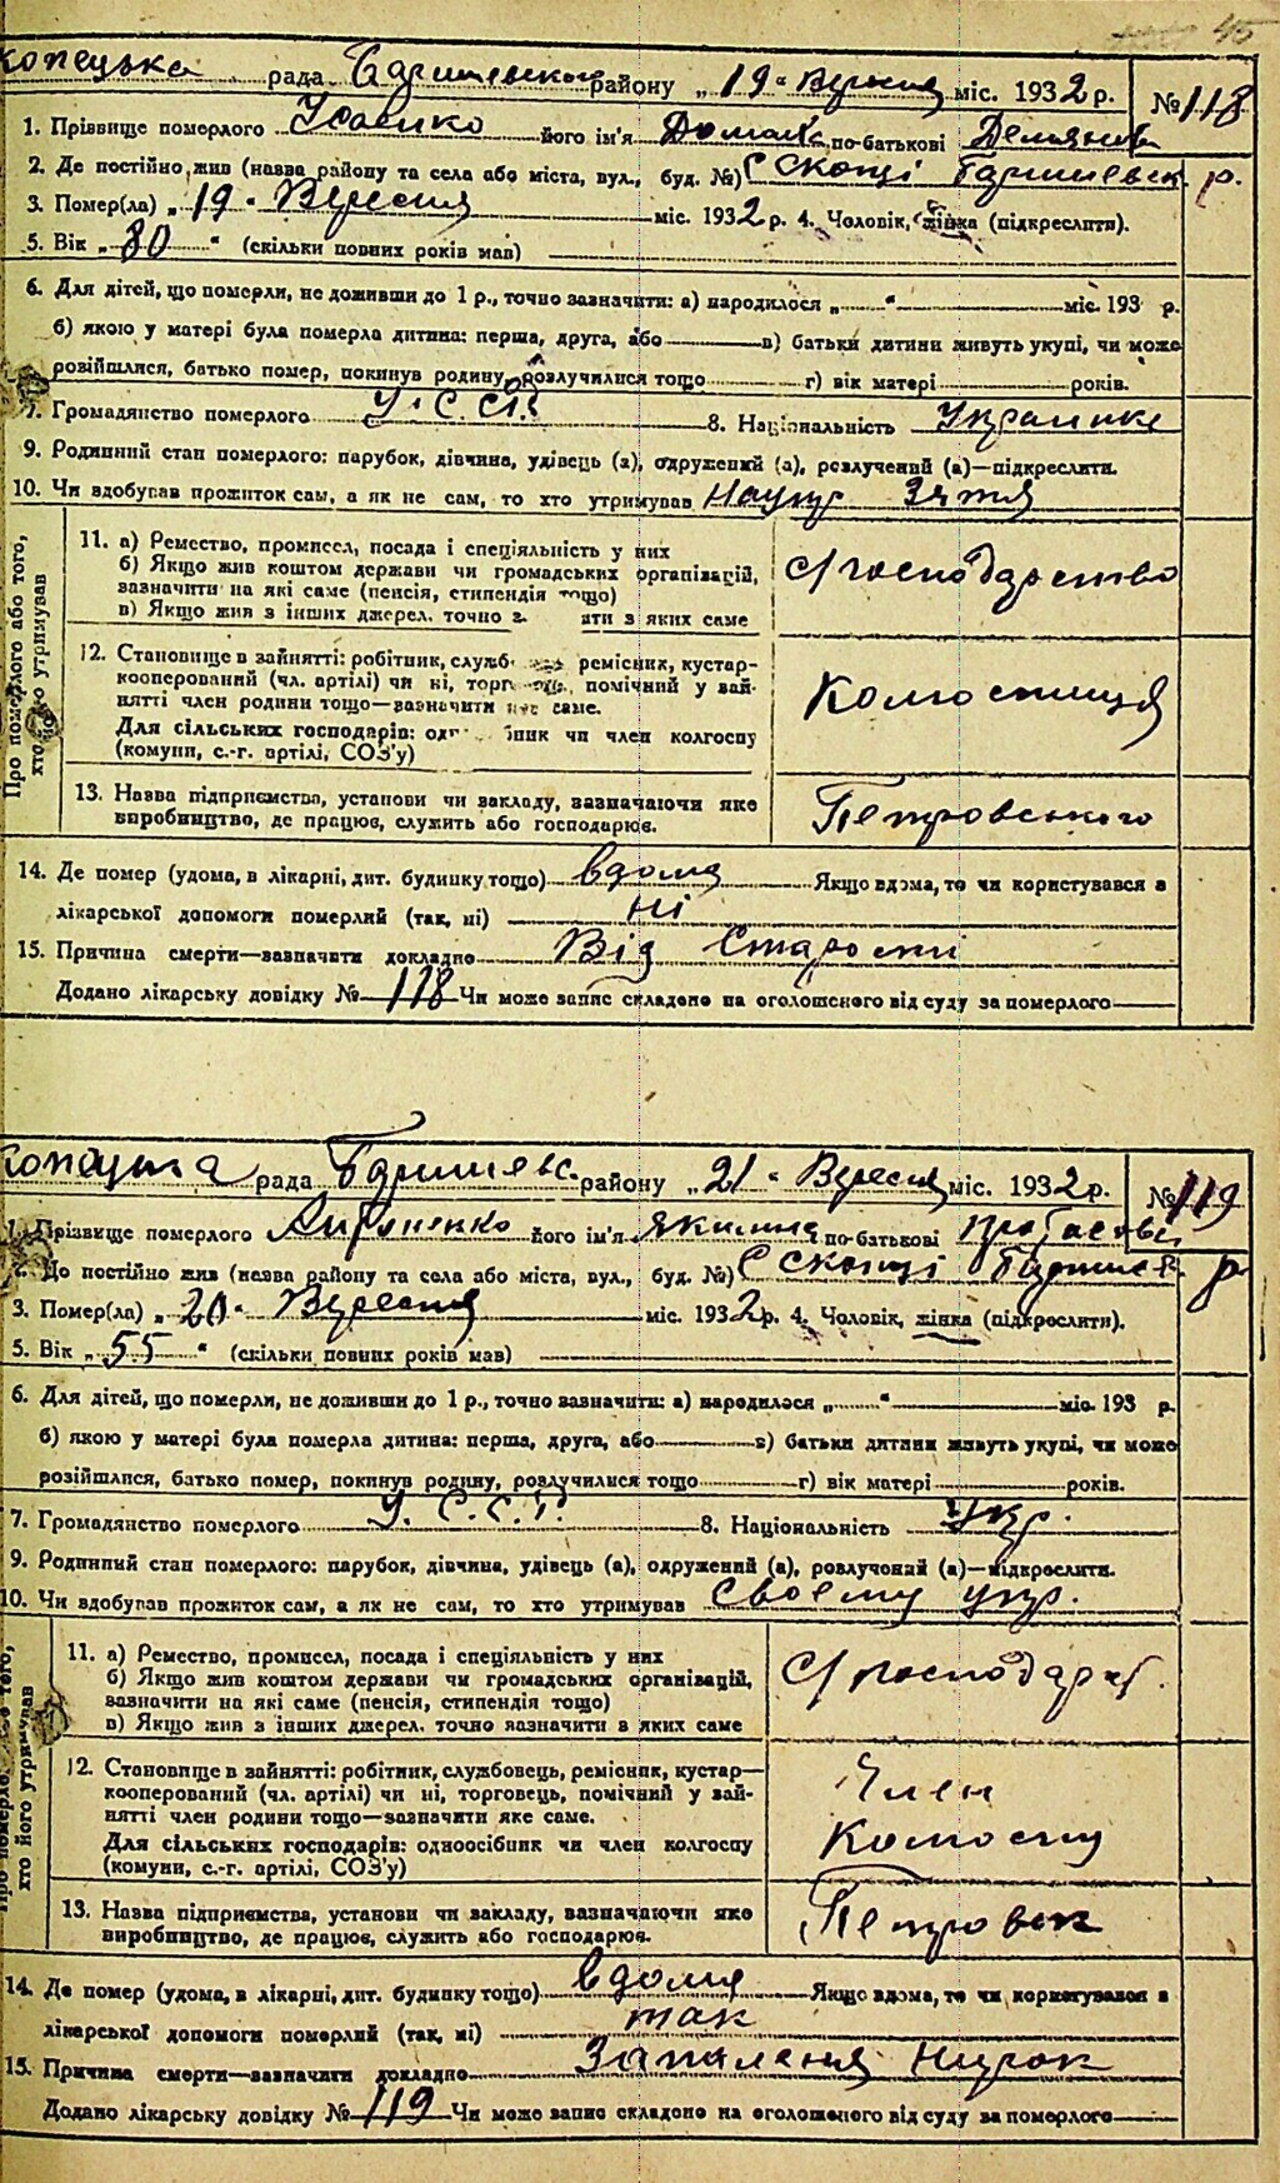 45
копецька рада Баришевского району „19" Вересня міс. 1932 р. №118
1. Прізвище померлого Усаенко його ім'я Домаха по-батькові Демянов
2. Де постійно жив (назва району та села або міста, вул., буд. №) С Скопці Баришевск. р.
3. Помер(ла) „19" Вересня міс. 1932 р. 4. Чоловік, жінка (підкреслити).
5. Вік „80" (скільки повних років мав)
6. Для дітей, що померли, не доживши до 1 р., точно зазначити: а) народилося „ " міс. 193 р.
б) якою у матері була померла дитина: перша, друга, або в) батьки дитини живуть укупі, чи може
розійшлися, батько помер, покинув родину, розлучилися тощо г) вік матері років.
7. Громадянство померлого У. С. С. Р. 8. Національність Українка
9. Родинний стан померлого: парубок, дівчина, удівець (а), одружений (а), розлучений (а)—підкреслити.
10. Чи здобував прожиток сам, а як не сам, то хто утримував На укр зятя
Про померлого або того, хто його утримував
11. а) Ремество, промисел, посада і спеціяльність у них
б) Якщо жив коштом держави чи громадських організацій,
зазначити на які саме (пенсія, стипендія тощо)
в) Якщо жив з інших джерел, точно з ати з яких саме
с/господарство
12. Становище в зайнятті: робітник, служб ремісник, кустар-
кооперований (чл. артілі) чи ні, торг помічний у зай-
нятті член родини тощо—зазначити яке саме.
Для сільських господарів: од бник чи член колгоспу
(комуни, с.-г. артілі, СОЗ'у)
Колгоспниця
13. Назва підприємства, установи чи закладу, зазначаючи яке
виробництво, де працює, служить або господарює.
Петровського
14. Де помер (удома, в лікарні, дит. будинку тощо) вдома Якщо вдома, то чи користувався з
лікарської допомоги померлий (так, ні) ні
15. Причина смерти—зазначити докладно Від Старости
Додано лікарську довідку № 118 Чи може запис складено на оголошеного від суду за померлого
копецька рада Баришевс. району „21" Вересня міс. 1932 р. №119
1. Прізвище померлого його ім'я Якилина по-батькові Протасовн
2. Де постійно жив (назва району та села або міста, вул., буд. №) С Скопці Баришев. р
3. Помер(ла) „20" Вересня міс. 1932 р. 4. Чоловік, жінка (підкреслити).
5. Вік „55" (скільки повних років мав)
6. Для дітей, що померли, не доживши до 1 р., точно зазначити: а) народилося „ " міс. 193 р.
б) якою у матері була померла дитина: перша, друга, або в) батьки дитини живуть укупі, чи може
розійшлися, батько помер, покинув родину, розлучилися тощо г) вік матері років.
7. Громадянство померлого У. С. С. Р. 8. Національність Укр.
9. Родинний стан померлого: парубок, дівчина, удівець (а), одружений (а), розлучений (а)—підкреслити.
10. Чи здобував прожиток сам, а як не сам, то хто утримував Своему укр.
Про померлого або того, хто його утримував
11. а) Ремество, промисел, посада і спеціяльність у них
б) Якщо жив коштом держави чи громадських організацій,
зазначити на які саме (пенсія, стипендія тощо)
в) Якщо жив з інших джерел, точно зазначити з яких саме
с/господарст.
12. Становище в зайнятті: робітник, службовець, ремісник, кустар—
кооперований (чл. артілі) чи ні, торговець, помічний у зай-
нятті член родини тощо—зазначити яке саме.
Для сільських господарів: одноосібник чи член колгоспу
(комуни, с.-г. артілі, СОЗ'у)
Член
Колгоспу
13. Назва підприємства, установи чи закладу, зазначаючи яке
виробництво, де працює, служить або господарює.
Петровск
14. Де помер (удома, в лікарні, дит. будинку тощо) вдома Якщо вдома, то чи користувався з
лікарської допомоги померлий (так, ні) так
15. Причина смерти—зазначити докладно Запаленя Нирок
Додано лікарську довідку № 119 Чи може запис складено на оголошеного від суду за померлого